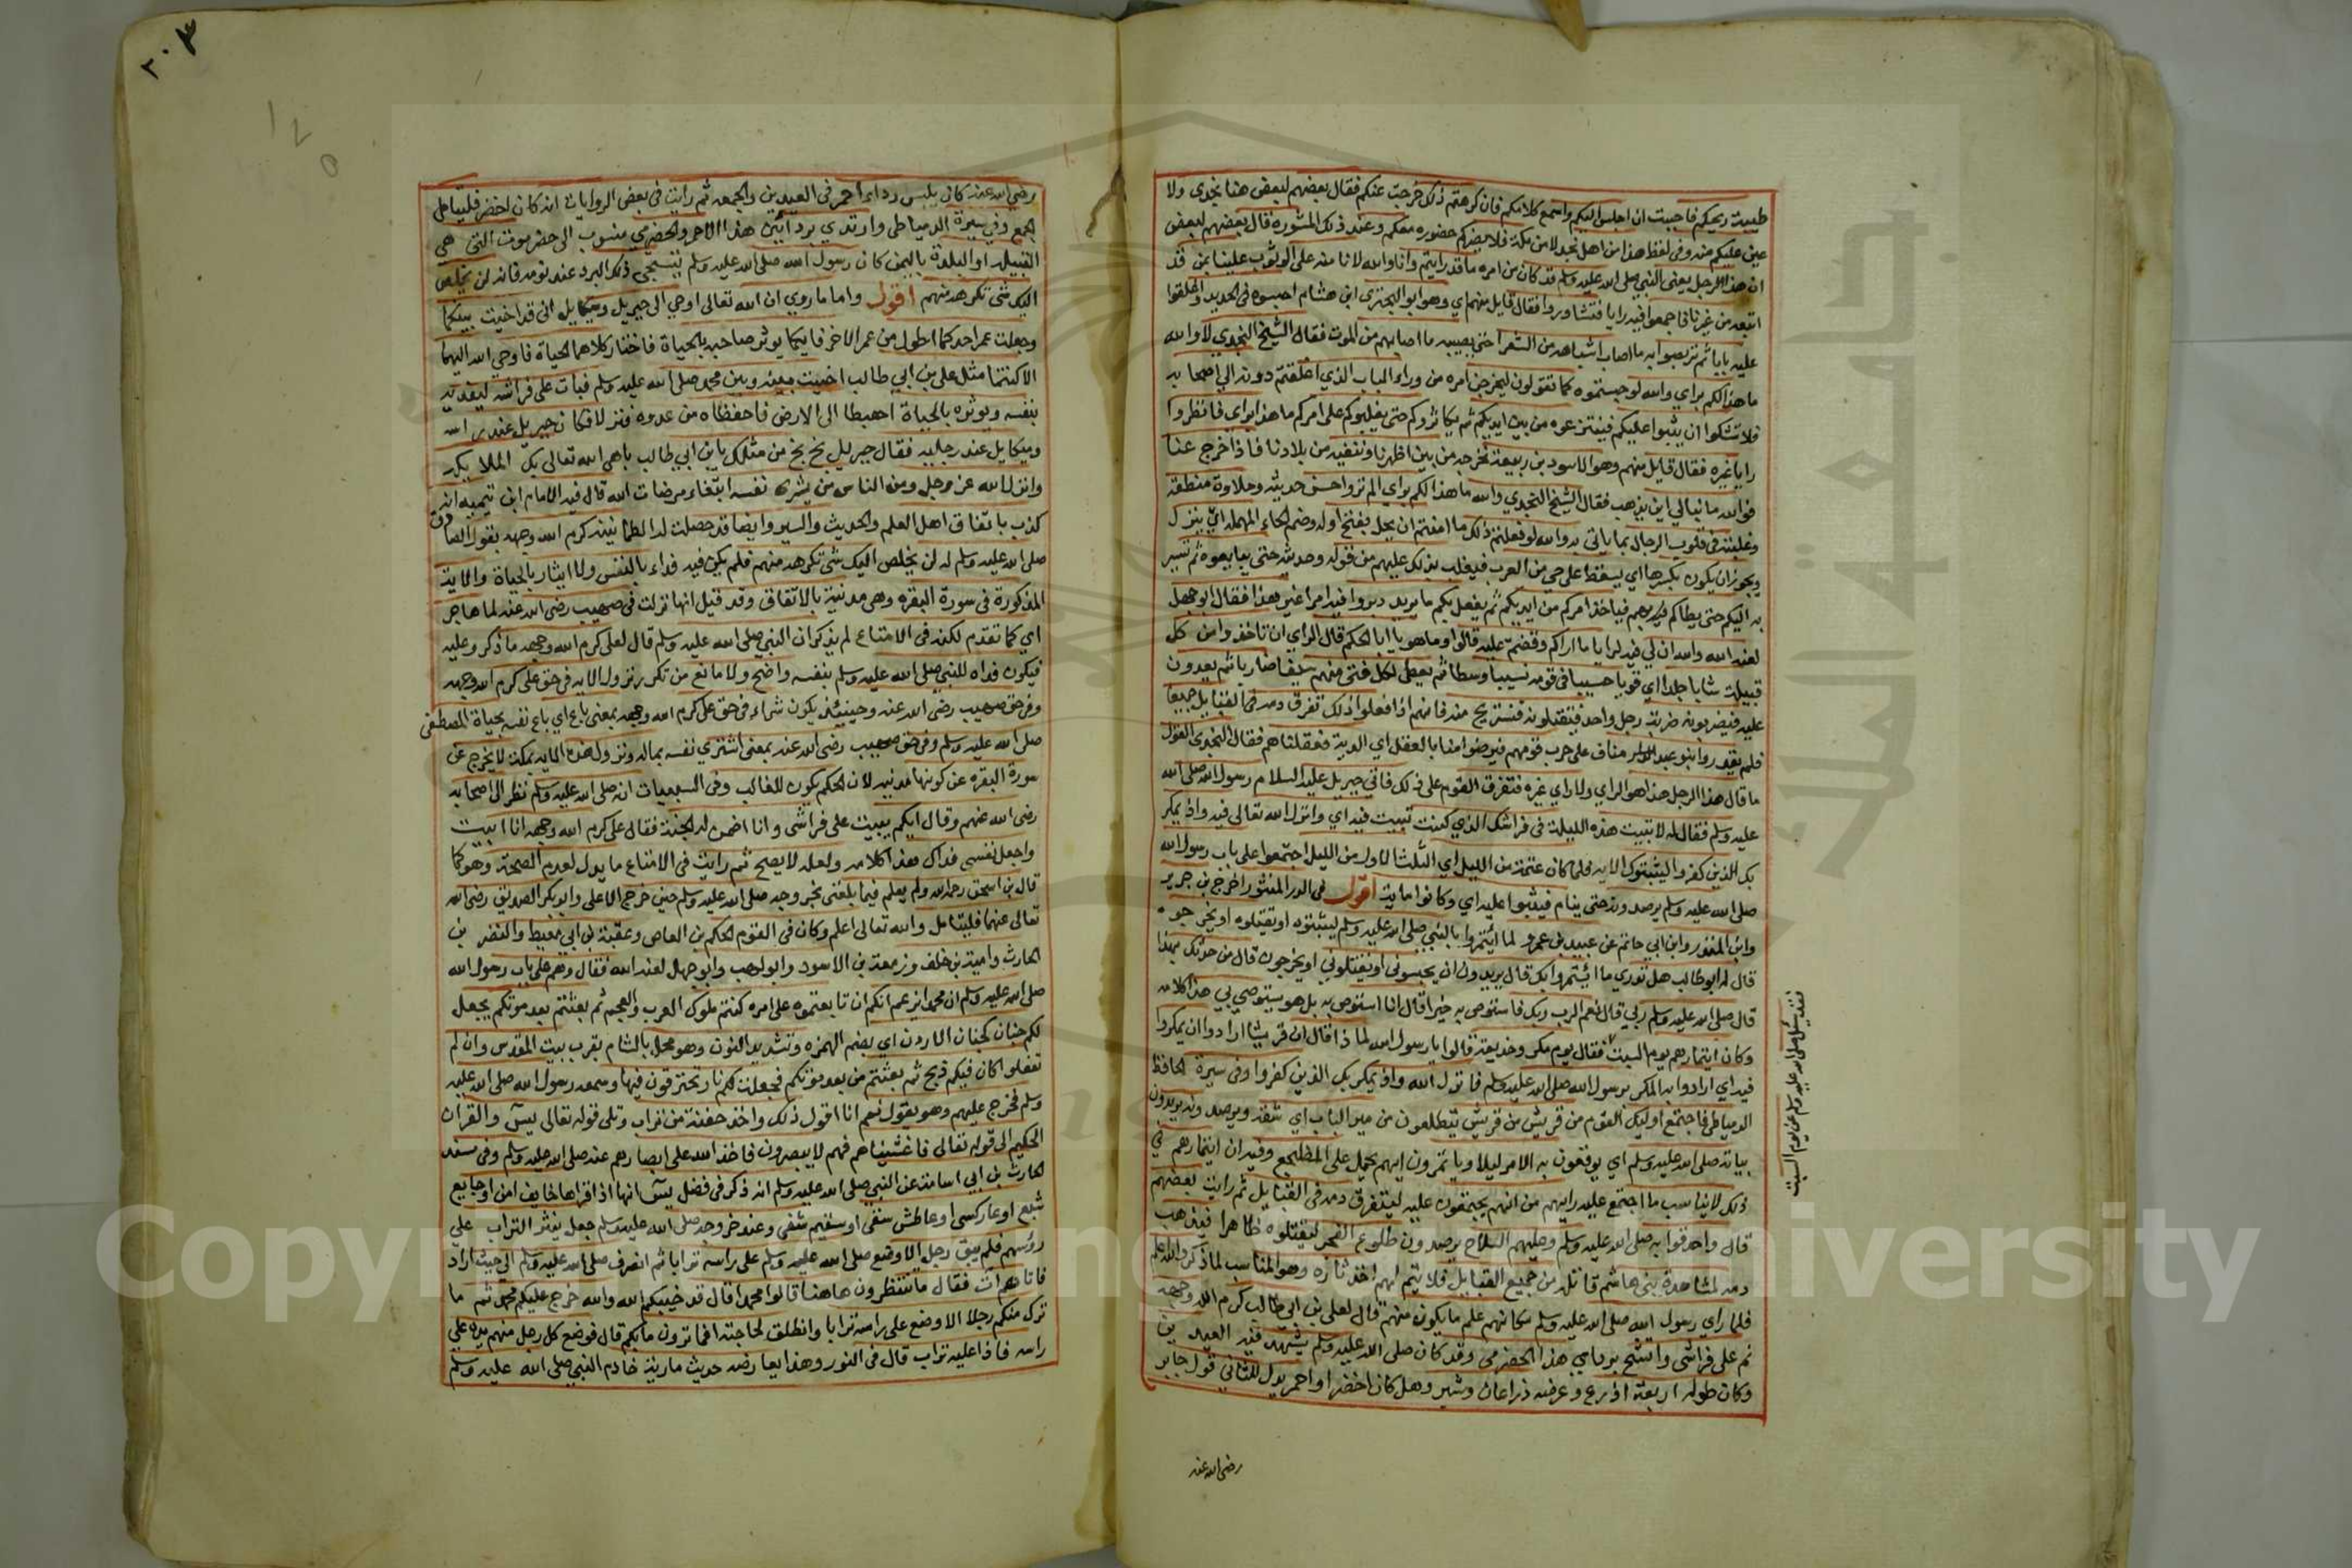 طيبة ريحكم فاحببت ان اجلس اليكم واسمع كلامكم فان كرهتم ذلك خرجت عنكم فقال بعضهم لبعض هذا نجدي ولا
عين عليكم منه وفي لفظ هذا من اهل نجد لا من مكة فلا يضركم حضوره معكم وعند ذلك المشورة قال بعضهم لبعض
ان هذا الرجل يعني النبي صلى الله عليه وسلم قد كان من امره ما قد رايتم وانا والله لا نامنه على الوثوب علينا بمن قد
اتبعه من غيرنا فاجمعوا فيه رايا فتشاوروا فقال قايل منهم اي وهو ابو البختري ابن هشام احبسوه في الحديد واغلقوا
عليه بابا ثم تربصوا به ما اصاب اشباهه من الشعرا حتى يصيبه ما اصابهم من الموت فقال الشيخ النجدي لا والله
ما هذا لكم براي والله لو حبستموه كما تقولون ليخرجن امره من وراء الباب الذي اغلقتم دونه الى اصحابه
فلا تشكوا ان يثبوا عليكم فينتزعوه من بين ايديكم ثم يكاثروكم حتى يغلبوكم على امركم ما هذا براي فانظروا
رايا غيره فقال قايل منهم وهو الاسود بن ربيعة نخرجه من بين اظهرنا وننفيه من بلادنا فاذا خرج عنا
فوالله ما نبالي اين يذهب فقال الشيخ النجدي والله ما هذا لكم براي الم تروا حسن حديثه وحلاوة منطقه
وغلبته في قلوب الرجال بما ياتي به والله لو فعلتم ذلك ما امنتم ان يحل بفتح اوله وضم الحاء المهملة اي ينزل
ويجوز ان يكون بكسرها اي يسقط على حي من العرب فيغلب بذلك عليهم من قوله وحديثه حتى يبايعوه ثم يسير
به اليكم حتى يطاكم بهم فياخذ امركم من ايديكم ثم يفعل بكم ما يريد دبروا فيه امرا غير هذا فقال ابو جهل
لعنه الله والله ان لي فيه لرايا ما اراكم وقعتم عليه قالوا وما هو يا ابا الحكم قال الراي ان تاخذوا من كل
قبيلة شابا جلدا اي قويا حسيبا في قومه نسيبا وسطا ثم يعطى لكل فتى منهم سيفا صارما ثم يعدون
عليه فيضربونه ضربة رجل واحد فيقتلونه فنستريح منه فانهم اذا فعلوا ذلك تفرق دمه في القبايل جميعا
فلم يقدروا بنو عبد مناف على حرب قومهم فيرضوا منا بالعقل اي الدية فعقلناهم فقال النجدي القول
ما قال هذا الرجل هذا هو الراي ولا راي غيره فتفرق القوم على ذلك فاتي جبريل عليه السلام رسول الله صلى الله
عليه وسلم فقال له لا تبيت هذه الليلة في فراشك الذي كنت تبيت فيه اي وانزل الله تعالى فيه واذ يمكر
بك الذين كفروا ليثبتوك الاية فلما كان عتمة من الليل اي الثلث الاول من الليل اجتمعوا على باب رسول الله
صلى الله عليه وسلم يرصدونه حتى ينام فيثبوا عليه اي وكانوا ماية اقول في الدر المنثور اخرج بن جرير
وابن المنذر وابن ابي حاتم عن عبيد بن عمرو لما ائتمروا بالنبي صلى الله عليه وسلم ليثبتوه او يقتلوه او يخرجوه
قال له ابو طالب هل تدري ما ائتمروا بك قال يريدون ان يحبسوني او يقتلوني او يخرجون قال من حدثك بهذا
قال صلى الله عليه وسلم ربي قال نعم الرب ربك فاستوص به خيرا قال انا استوصي به بل هو يستوصي بي هذا كلامه
وكان ايتمارهم يوم السبت فقال يوم مكر وخديعة قالوا يا رسول الله لماذا قال ان قريشا ارادوا ان يمكروا
فيه اي ارادوا به المكر برسول الله صلى الله عليه وسلم فانزل الله واذ يمكر بك الذين كفروا وفي سيرة الحافظ
الدمياطي فاجتمع اوليك القوم من قريش من قريش يتطلعون من صير الباب اي شقه ويرصدونه يريدون
بياته صلى الله عليه وسلم اي يوقعون به الامر ليلا وياتمرون ايهم يحمل على المضطجع وفيه ان ايتمارهم في
ذلك لا يناسب ما اجتمع عليه رايهم من انهم يجتمعون عليه ليتفرق دمه في القبايل ثم رايت بعضهم
قال واحدقوا به صلى الله عليه وسلم وعليهم السلاح يرصدون طلوع الفجر ليقتلوه ظاهرا فيذهب
دمه لمشاهدة بني هاشم قاتله من جميع القبايل فلا يتم لهم اخذ ثاره وهو المناسب لما ذكر والله اعلم
فلما راي رسول الله صلى الله عليه وسلم مكانهم علم ما يكون منهم قال لعلي بن ابي طالب كرم الله وجهه
نم على فراشي واتشح بردايي هذا الحضرمي وقد كان صلى الله عليه وسلم يشهد فيه العيدين
وكان طوله اربعة اذرع وعرضه ذراعان وشبر وهل كان اخضر او احمر يدل للثاني قول جابر
رضي الله عنه
فقد سئل صلى الله عليه وسلم عن يوم السبت
٢٠٣
رضي الله عنه كان يلبس رداء احمر في العيدين والجمعة ثم رايت في بعض الروايات انه كان اخضر فليتامل
الجمع وفي سيرة الدمياطي وارتدي بردايي هذا الاحمر والحضرمي منسوب الى حضرموت التي هي
القبيلة او البلدة باليمن كان رسول الله صلى الله عليه وسلم يتسجى ذلك البرد عند نومه فانه لن يخلص
اليك شي تكرهه منهم اقول واما ما روي ان الله تعالى اوحي الى جبريل وميكايل اني قد اخيت بينكما
وجعلت عمر احدكما اطول من عمر الاخر فايكما يوثر صاحبه بالحياة فاختار كلاهما الحياة فاوحي الله اليهما
الا كنتما مثل علي بن ابي طالب اخيت بينه وبين محمد صلى الله عليه وسلم فبات على فراشه ليفديه
بنفسه ويوثره بالحياة اهبطا الى الارض فاحفظاه من عدوه فنزلا فكان جبريل عند راسه
وميكايل عند رجليه فقال جبريل بخ بخ من مثلك يابن ابي طالب باهى الله تعالى بك الملايكة
وانزل الله عز وجل ومن الناس من يشري نفسه ابتغاء مرضات الله قال فيه الامام ابن تيمية انه
كذب باتفاق اهل العلم والحديث والسير وايضا قد حصلت له الطمانينة كرم الله وجهه بقول الصادق
صلى الله عليه وسلم له لن يخلص اليك شي تكرهه منهم فلم يكن فيه فداء بالنفس ولا ايثار بالحياة والاية
المذكورة في سورة البقرة وهي مدنية بالاتفاق وقد قيل انها نزلت في صهيب رضي الله عنه لما هاجر
اي كما تقدم لكنه في الامتاع لم يذكر ان النبي صلى الله عليه وسلم قال لعلي كرم الله وجهه ما ذكر وعليه
فيكون فداه للنبي صلى الله عليه وسلم بنفسه واضح ولا مانع من تكرر نزول الاية في حق علي كرم الله وجهه
وفي حق صهيب رضي الله عنه وحينيئذ يكون شراء في حق علي كرم الله وجهه بمعنى باع اي باع نفسه بحياة المصطفى
صلى الله عليه وسلم وفي حق صهيب رضي الله عنه بمعنى اشتري نفسه بماله ونزول هذه الاية بمكة لا يخرج عن
سورة البقرة عن كونها مدنية لان الحكم يكون للغالب وفي السبعيات انه صلى الله عليه وسلم نظر الى اصحابه
رضي الله عنهم وقال ايكم يبيت على فراشي وانا اضمن له الجنة فقال علي كرم الله وجهه انا ابيت
واجعل نفسي فداك هذا كلامه ولعله لا يصح ثم رايت في الامتاع ما يدل لعدم الصحة وهو كما
قال بن اسحق رحمه الله ولم يعلم فيما بلغني بخروجه صلى الله عليه وسلم حين خرج الا علي وابو بكر الصديق رضي الله
تعالى عنهما فليتامل والله تعالى اعلم وكان في القوم الحكم بن العاص وعقبة بن ابي معيط والنضر بن
الحارث وامية بن خلف وزمعة بن الاسود وابو لهب وابو جهل لعنه الله فقال وهم على باب رسول الله
صلى الله عليه وسلم ان محمدا يزعم انكم ان تابعتموه على امره كنتم ملوك العرب والعجم ثم بعثتم بعد موتكم يجعل
لكم جنان كجنان الاردن اي بضم الهمزه وتشديد النون وهو محل بالشام بقرب بيت المقدس وان لم
تفعلوا كان فيكم ذبح ثم بعثتم من بعد موتكم فجعلت لكم نار تحترقون فيها وسمعه رسول الله صلى الله عليه
وسلم فخرج عليهم وهو يقول نعم انا اقول ذلك واخذ حفنة من تراب وتلى قوله تعالى يس والقران
الحكيم الى قوله تعالى فاغشيناهم فهم لا يبصرون فاخذ الله على ابصارهم عنه صلى الله عليه وسلم وفي مسند
الحارث بن ابي اسامة عن النبي صلى الله عليه وسلم انه ذكر في فضل يس انها اذا قراها خايف امن او جايع
شبع او عار كسي او عاطش سقي او سقيم شفي وعند خروجه صلى الله عليه وسلم جعل ينثر التراب علي
روسهم فلم يبق رجل الا وضع صلى الله عليه وسلم على راسه ترابا ثم انصرف صلى الله عليه وسلم الى حيث اراد
فاتاهم آت فقال ما تنتظرون هاهنا قالوا محمدا قال قد خيبكم الله والله خرج عليكم محمد ثم ما
ترك منكم رجلا الا وضع على راسه ترابا وانطلق لحاجته افما ترون ما بكم قال فوضع كل رجل منهم يده علي
راسه فاذا عليه تراب قال في النور وهذا يعارضه حديث مارية خادم النبي صلى الله عليه وسلم
Copyright © King Saud University
جامعة الملك سعود